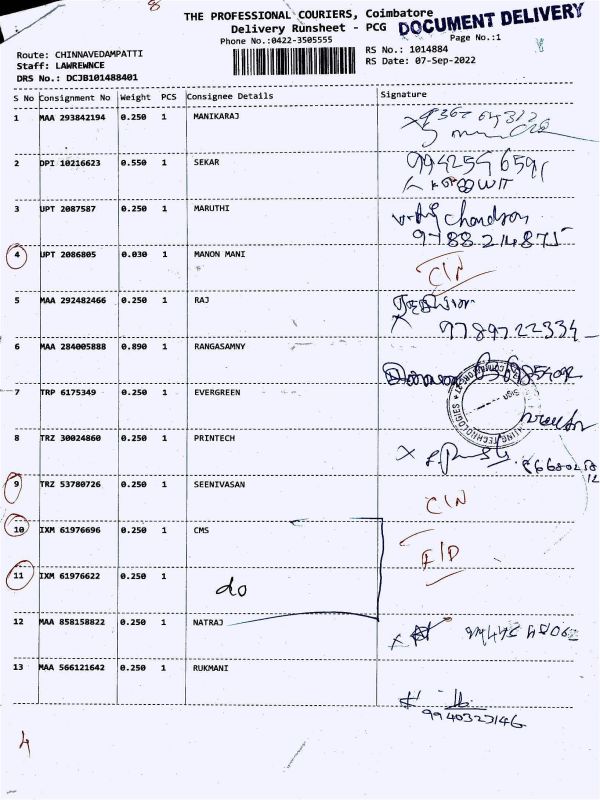 8
THE PROFESSIONAL COURIERS, Coimbatore
DOCUMENT DELIVERY
Delivery Runsheet - PCG
Page No.:1
Phone No.:0422-3505555
Route: CHINNAVEDAMPATTI
RS No.: 1014884
Staff: LAWREWNCE
RS Date: 07-Sep-2022
DRS No.: DCJB101488401
S No Consignment No Weight PCS Consignee Details Signature
1 MAA 293842194 0.250 1 MANIKARAJ
2 DPI 10216623 0.550 1 SEKAR
3 UPT 2087587 0.250 1 MARUTHI
9788214875
4 UPT 2086805 0.030 1 MANON MANI C/N
5 MAA 292482466 0.250 1 RAJ
9789722334
6 MAA 284005888 0.890 1 RANGASAMNY
7 TRP 6175349 0.250 1 EVERGREEN
TECHNOLOGIES
8 TRZ 30024860 0.250 1 PRINTECH
9 TRZ 53780726 0.250 1 SEENIVASAN C/N
10 IXM 61976696 0.250 1 CMS
11 IXM 61976622 0.250 1 do
12 MAA 858158822 0.250 1 NATRAJ
13 MAA 566121642 0.250 1 RUKMANI
9940323146
4